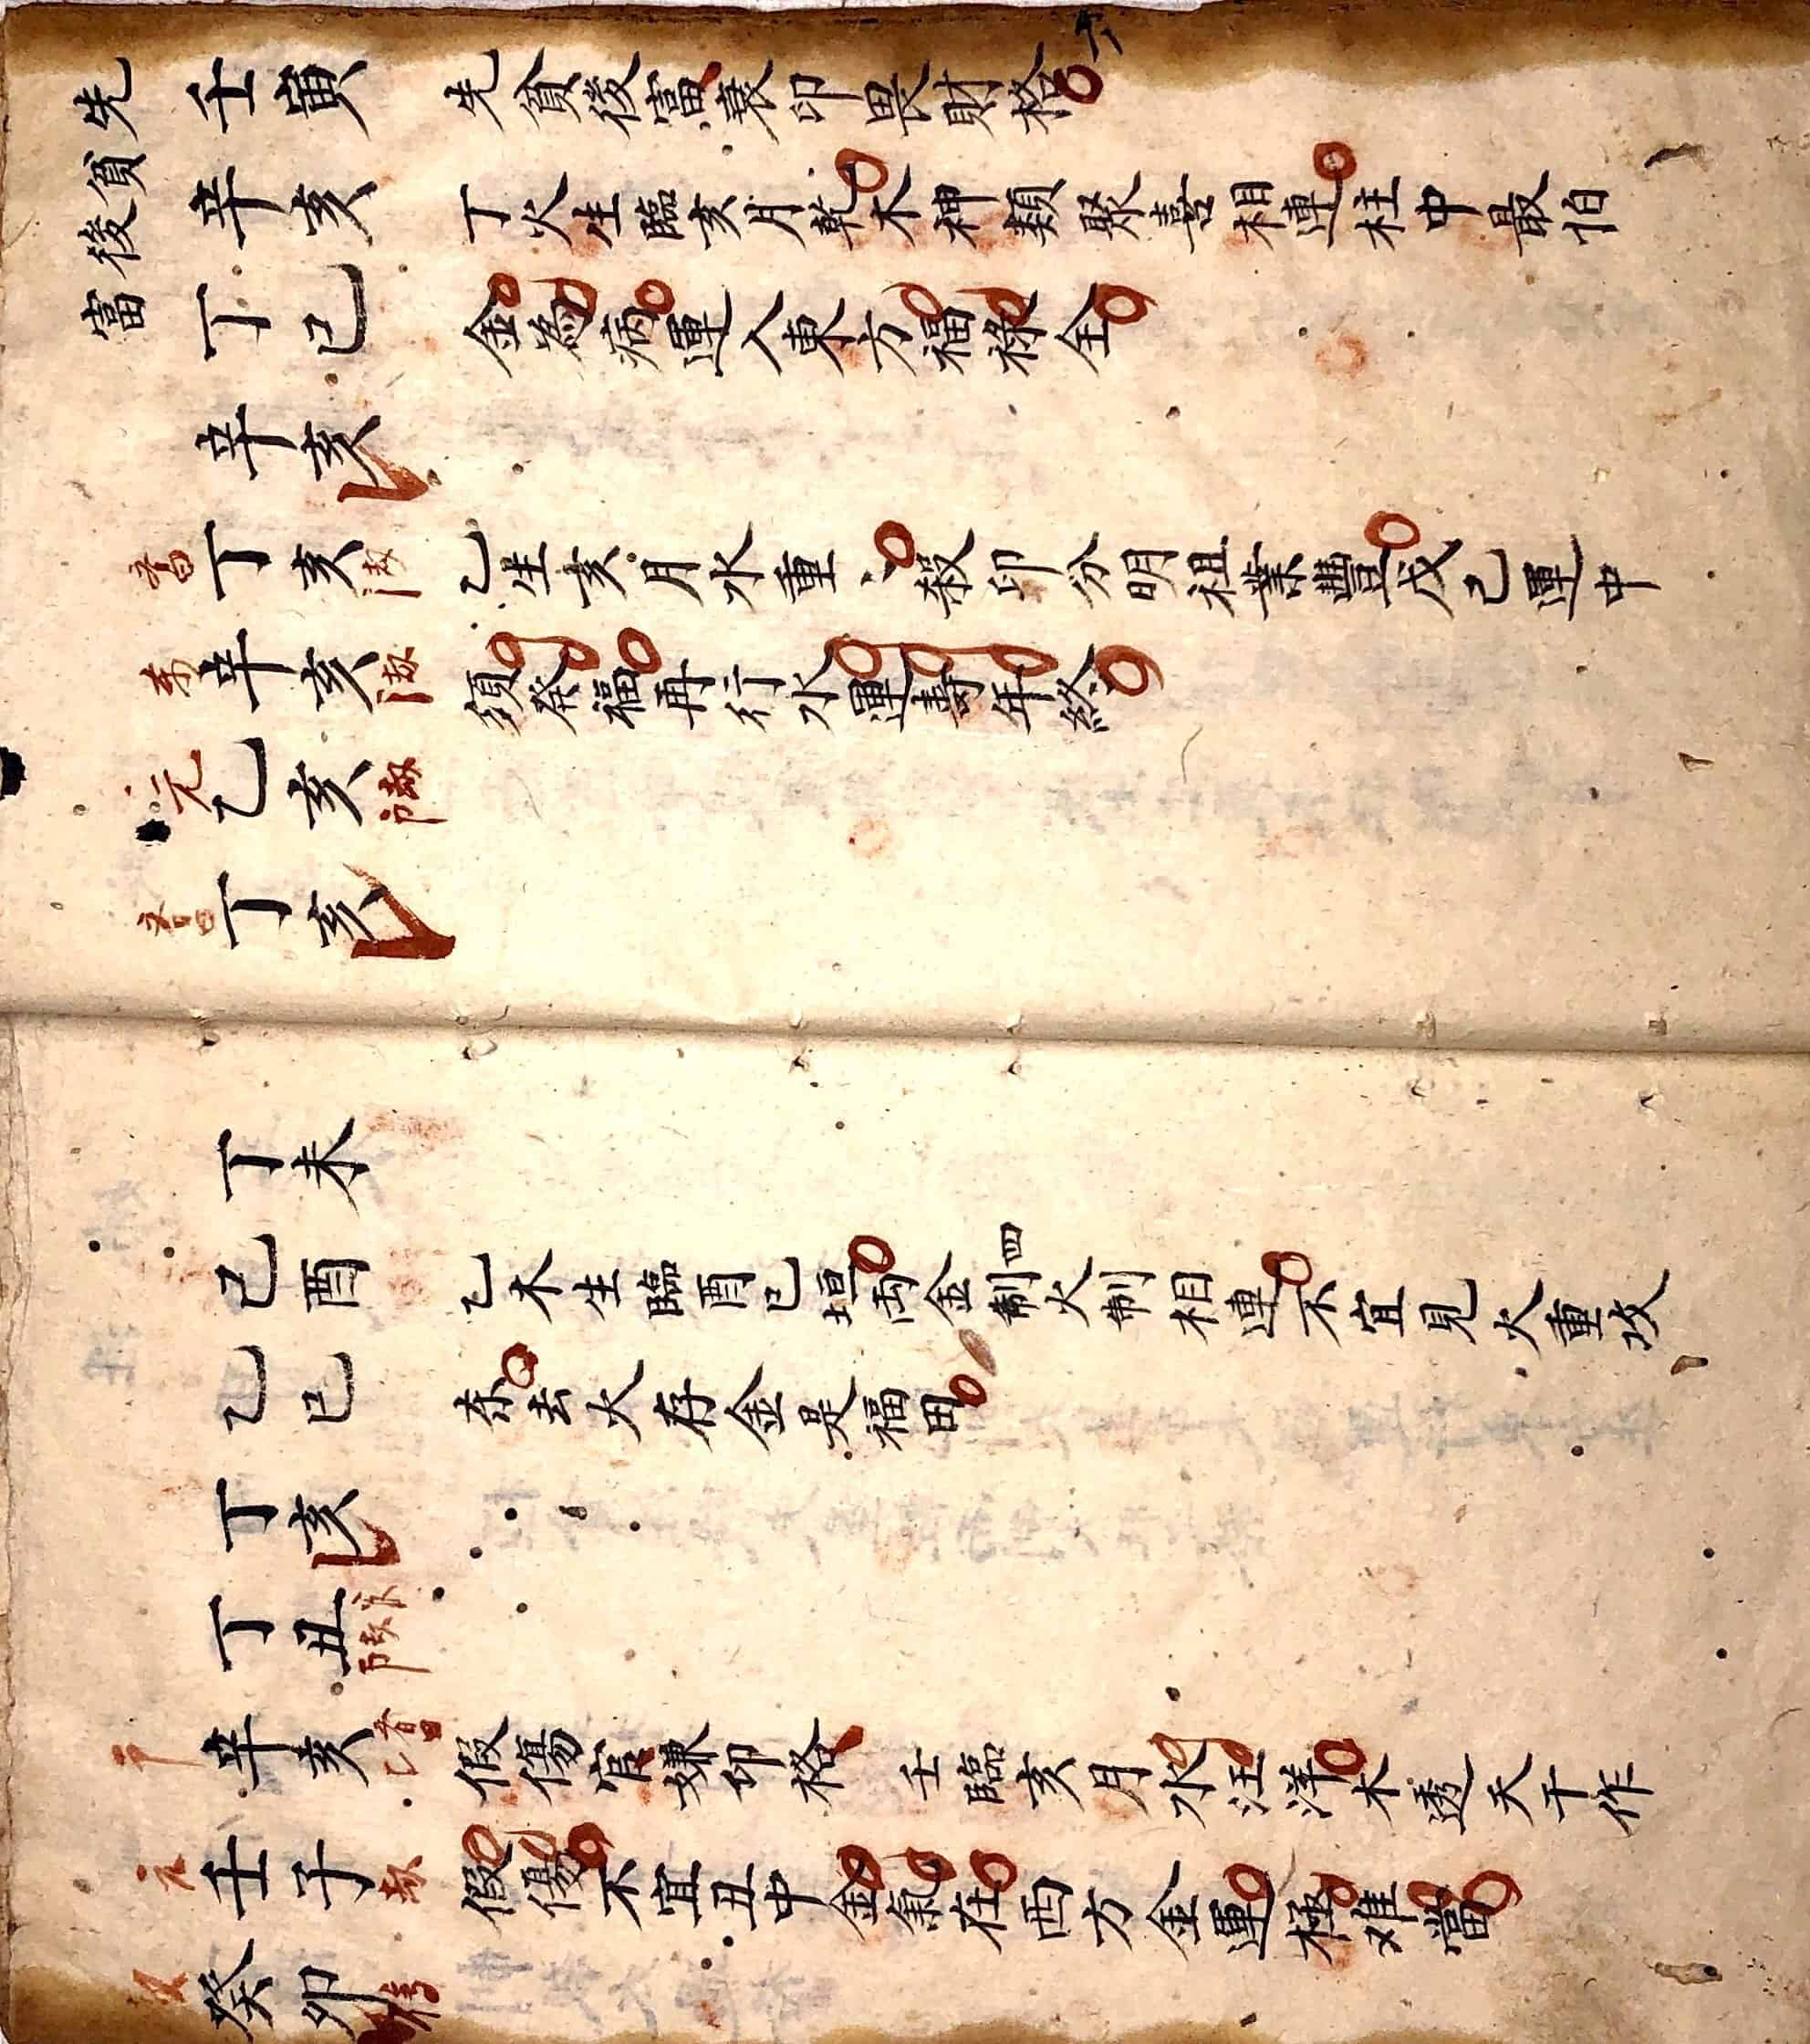 先貧後富
壬寅 先貧後富衰印畏財格
辛亥 丁火生臨亥月乾木神類聚喜相連柱中最怕
丁巳 金為病運入東方福祿全
辛亥
丁亥 乙生亥月水重殺印分明祖業豐戊己運中
辛亥 須發福再行水運壽年終
元 乙亥
丁亥
丁未
己酉 乙木生臨酉巳垣兩金制四火制相連不宜見火重攻
乙巳 奈去火存金是福田
丁亥
丁丑
辛亥 假傷官嫌印格 壬臨亥月水汪洋木透天干作
元 壬子 假傷不宜丑中金氣在西方金運極难當
癸卯